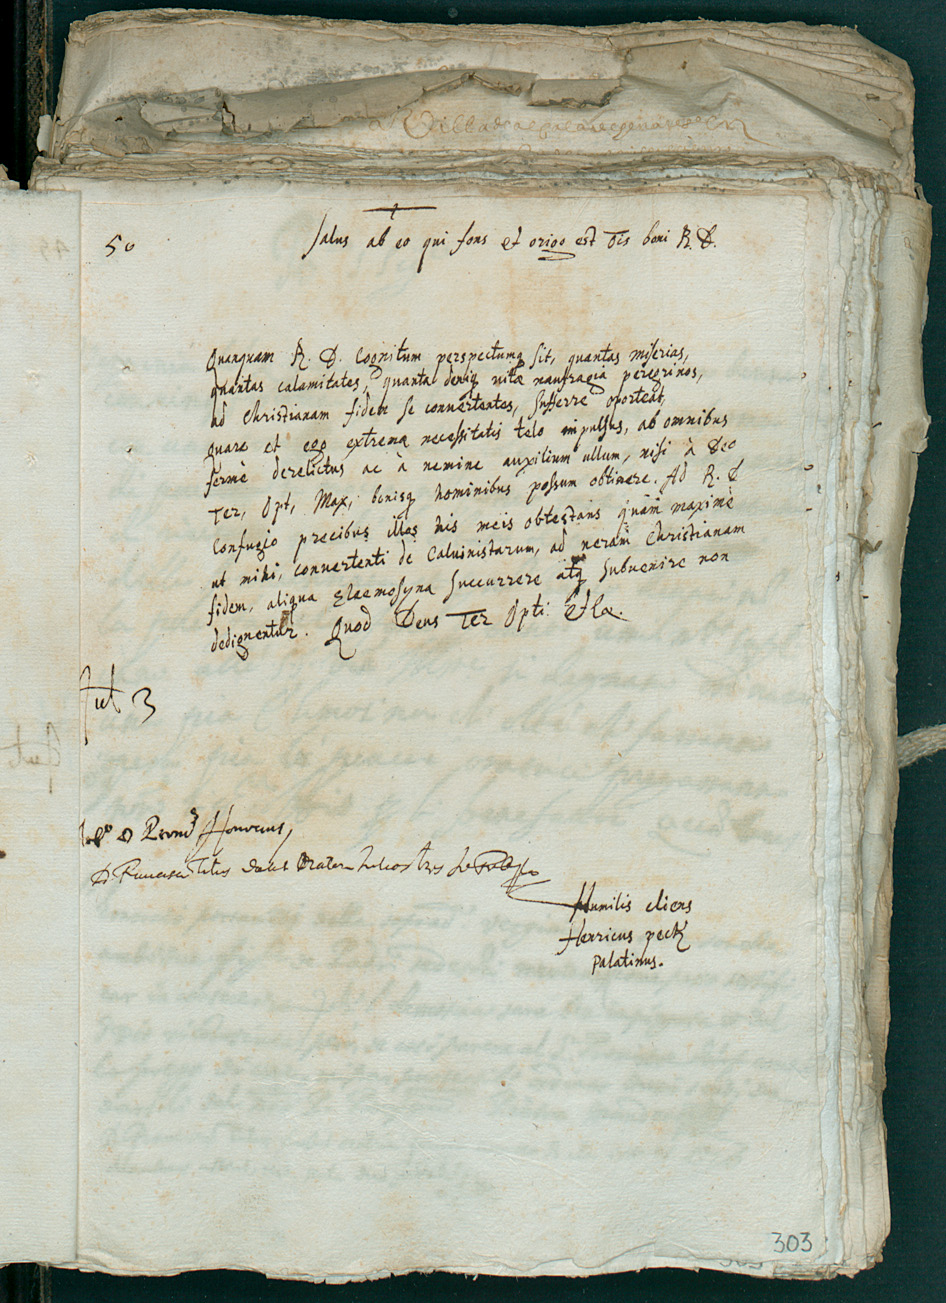 50
Salus ab eo qui fons et origo est ōis boni R. D.
Quanquam R. D. cognitum perspectumq sit, quantas miserias,
quantas calamitates, quanta deniq vitæ naufragia peregrinos,
ad Christianam fidem se convertentes, sufferre oporteat,
quare et ego extrema necessitatis telo impulsus, ab omnibus
fermè derelictus ac à nemine auxilium ullum, nisi à Deo
Ter, Opt, Max, bonisq hominibus possum obtinere. Ad R. D
confugio precibus illas his meis obtestans quàm maximè
ut mihi, convertenti de Calvinistarum, ad veram Christianam
fidem, aliqua elaemosyna succurrere atq subvenire non
dedignentur. Quod Deus Ter Opti
fiat 3
Humilis cliens
Henricus peck
Palatinus.
303